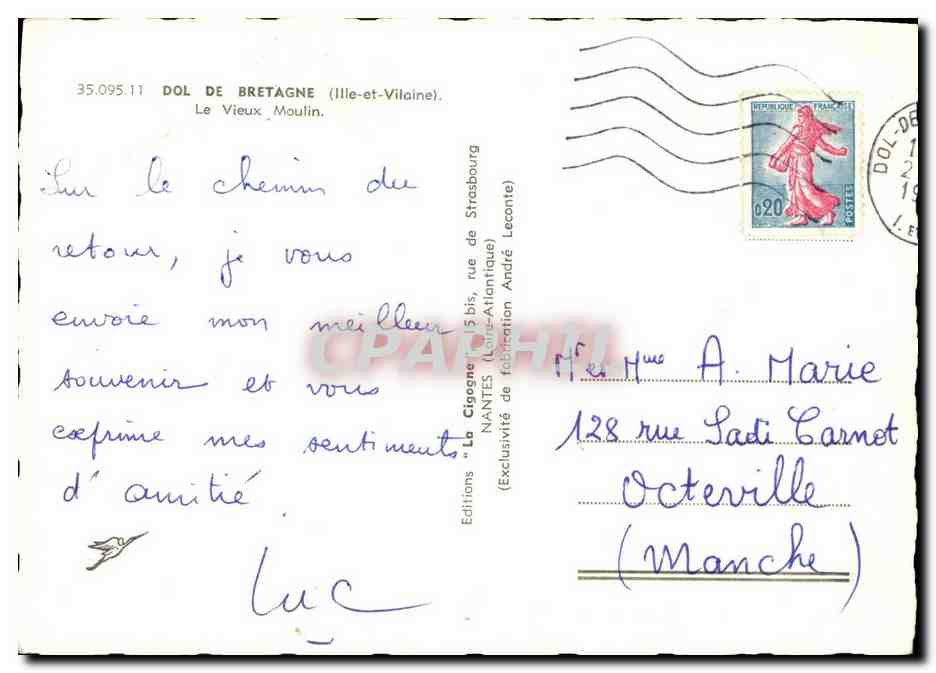 35.095.11 DOL DE BRETAGNE (Ille-et-Vilaine).
Le Vieux Moulin.
Sur le chemin du
retour, je vous
envoie mon meilleur
souvenir et vous
exprime mes sentiments
d'amitié
Luc
Editions "La Cigogne" 15 bis, rue de Strasbourg
NANTES (Loire-Atlantique)
(Exclusivité de fabrication André Leconte)
CPAPHIL
REPUBLIQUE FRANÇAISE
0,20
POSTES
DOL-DE
Mr et Mme A. Marie
128 rue Sadi Carnot
Octeville
(Manche)